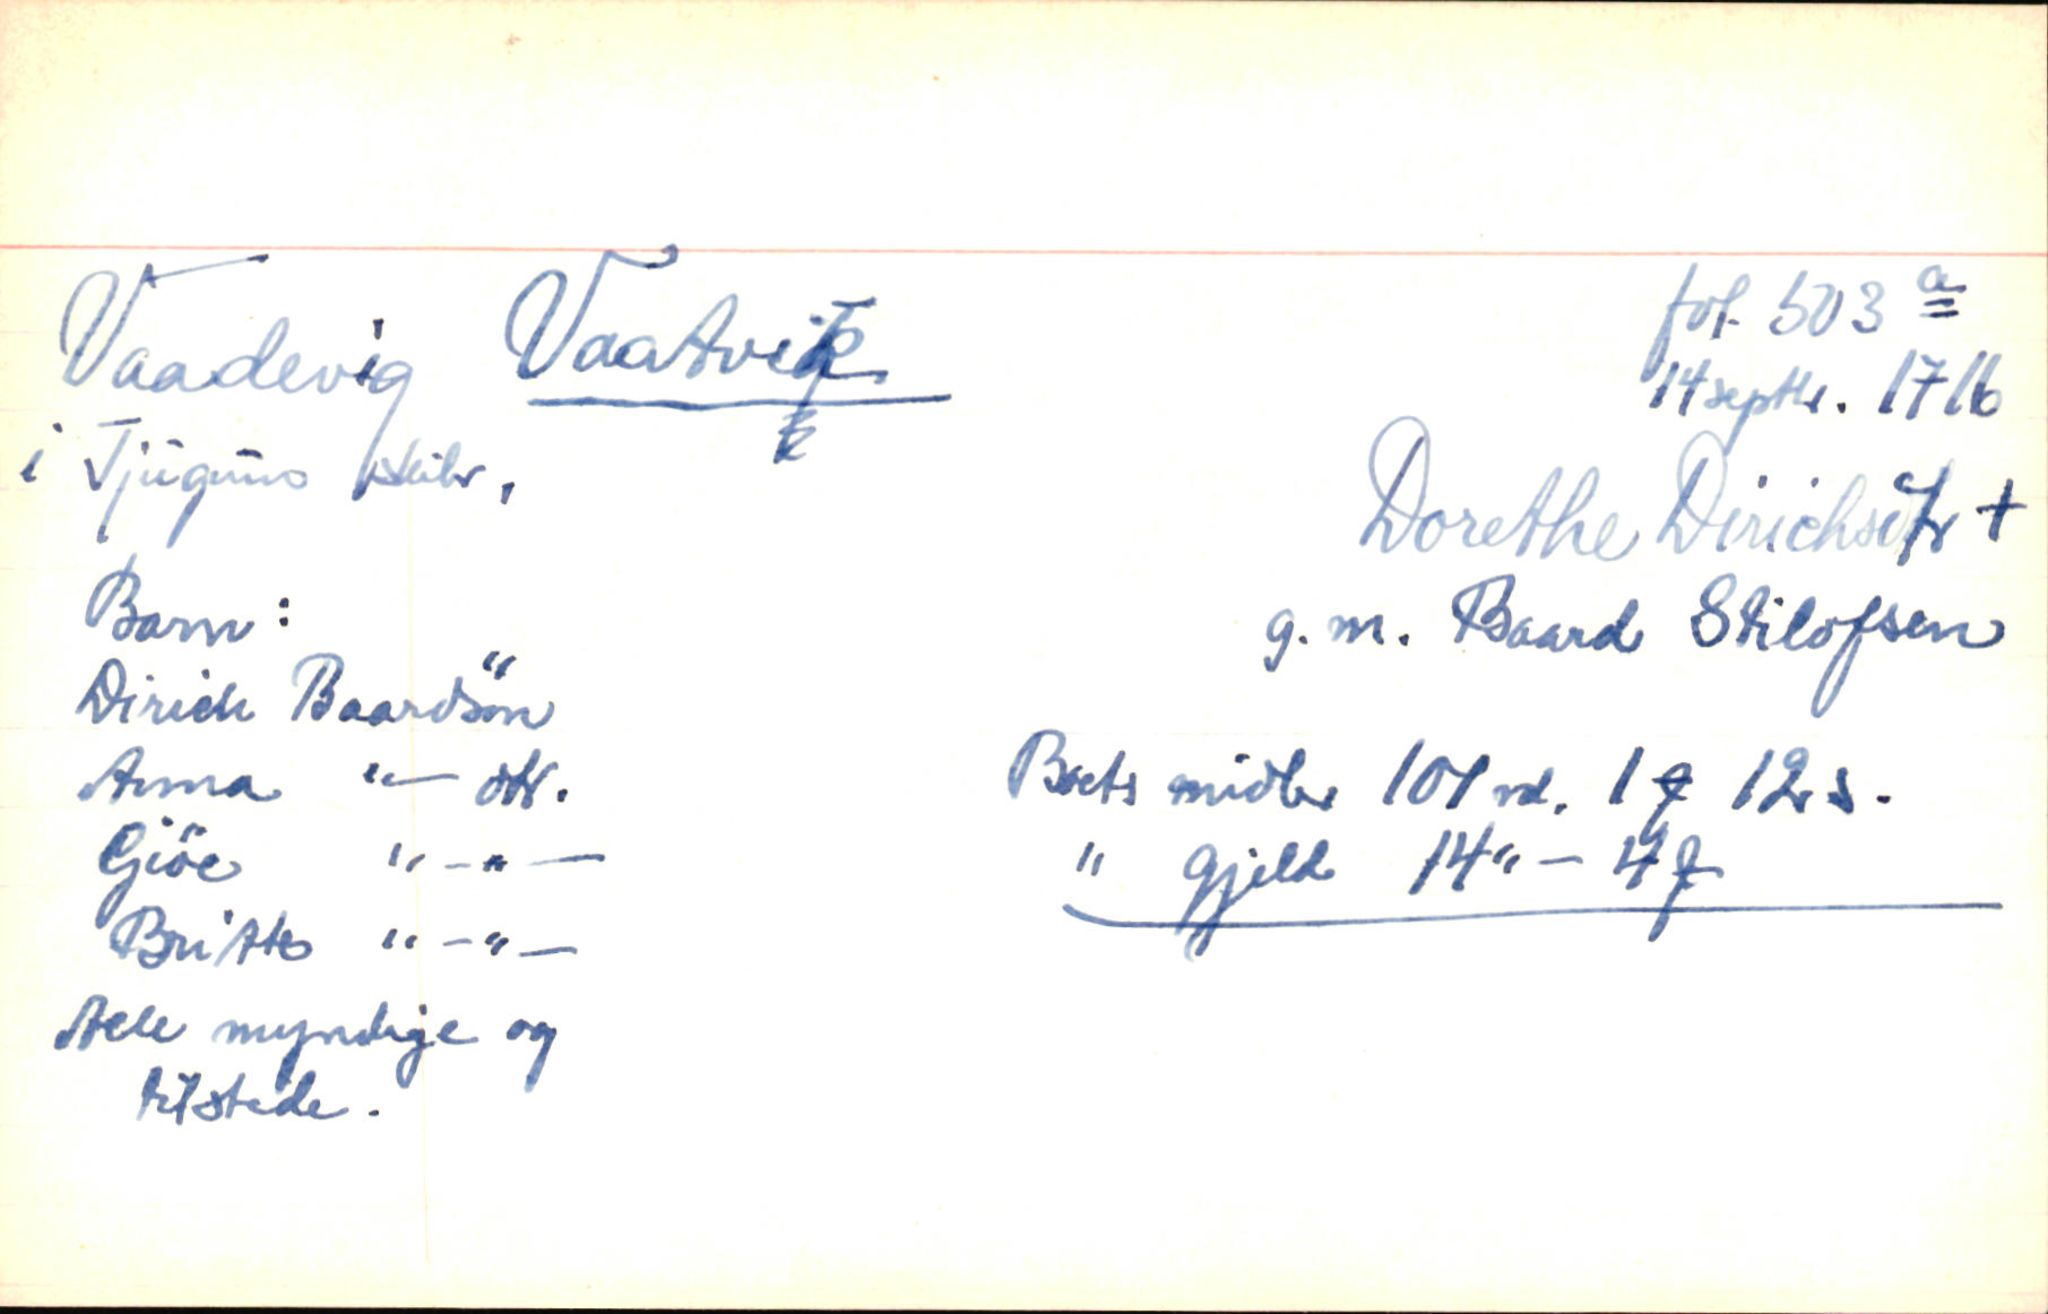 Vaadevig Vaatvik
fol. 503 a
14 septbr. 1716
i Tjugums skibr,
Dorethe Dirichsdtr +
g. m. Baard Stilofsen
Barn:
Dirich Baardsön
Anna "— dtr.
Giöe " - " —
Britte " - " —
Alle myndige og
tilstede.
Boets midler 101 rd. 1 ƒ 12 s.
" Gjeld 14 " — 4 ƒ